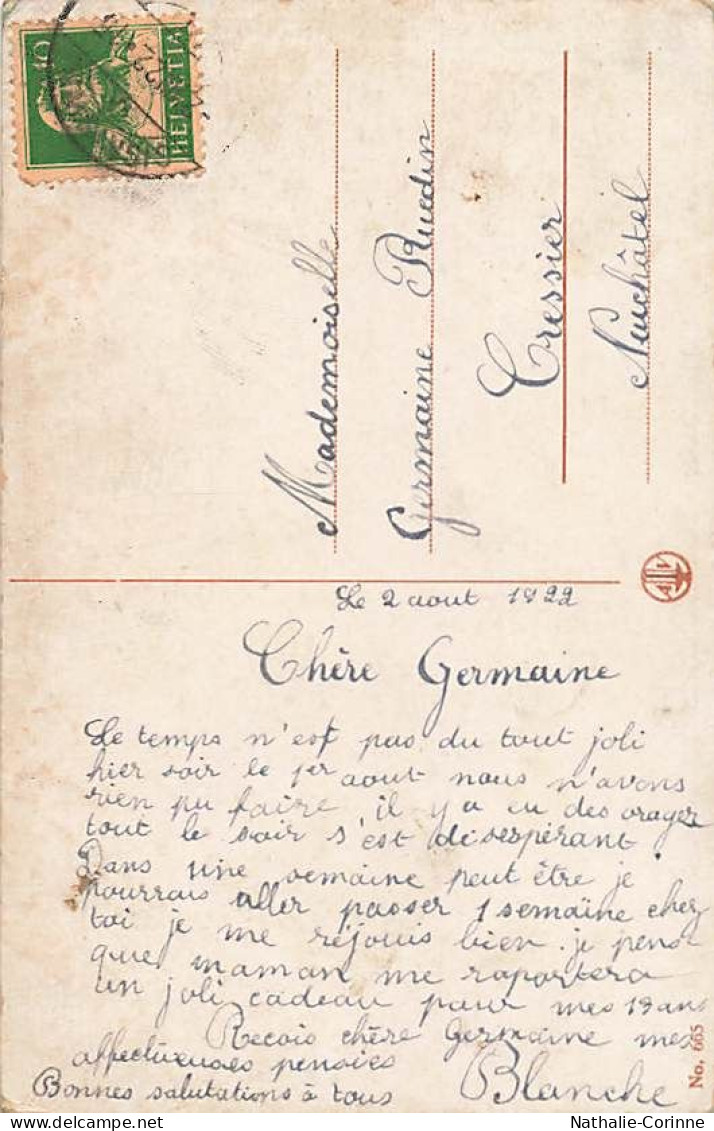 10
HELVETIA
Mademoiselle
Germaine Ruedin
Cressier
Neuchâtel
Le 2 aout 1922
Chère Germaine
Le temps n'est pas du tout joli
hier soir le 1er aout nous n'avons
rien pu faire il y a eu des orages
tout le soir s'est désespérant
Dans une semaine peut être je
pourrais aller passer 1 semaine chez
toi je me réjouis bien. je pense
que maman me raportera
un joli cadeau pour mes 13 ans
Recois chère Germaine mes
affectueuses pensées
Bonnes salutations à tous Blanche
No. 665
Nathalie-Corinne